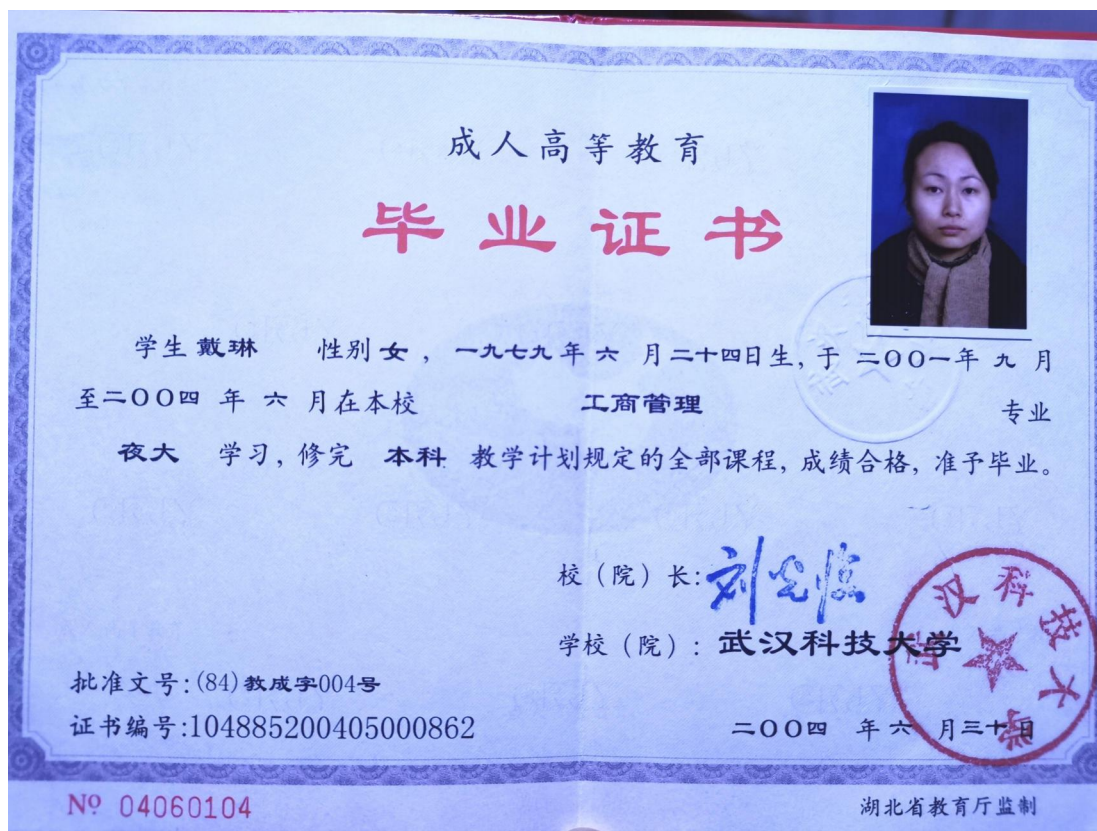 成人高等教育
毕业证书
学生 戴琳 性别 女 ，一九七九 年 六 月 二十四日生，于 二〇〇一年 九 月
至二〇〇四 年 六 月在本校 工商管理 专业
夜大 学习，修完 本科 教学计划规定的全部课程，成绩合格，准予毕业。
校（院）长：刘光临
学校（院）：武汉科技大学
武汉科技大学
批准文号：(84)教成字004号
证书编号：104885200405000862
二〇〇四 年 六 月三十日
Nº 04060104
湖北省教育厅监制